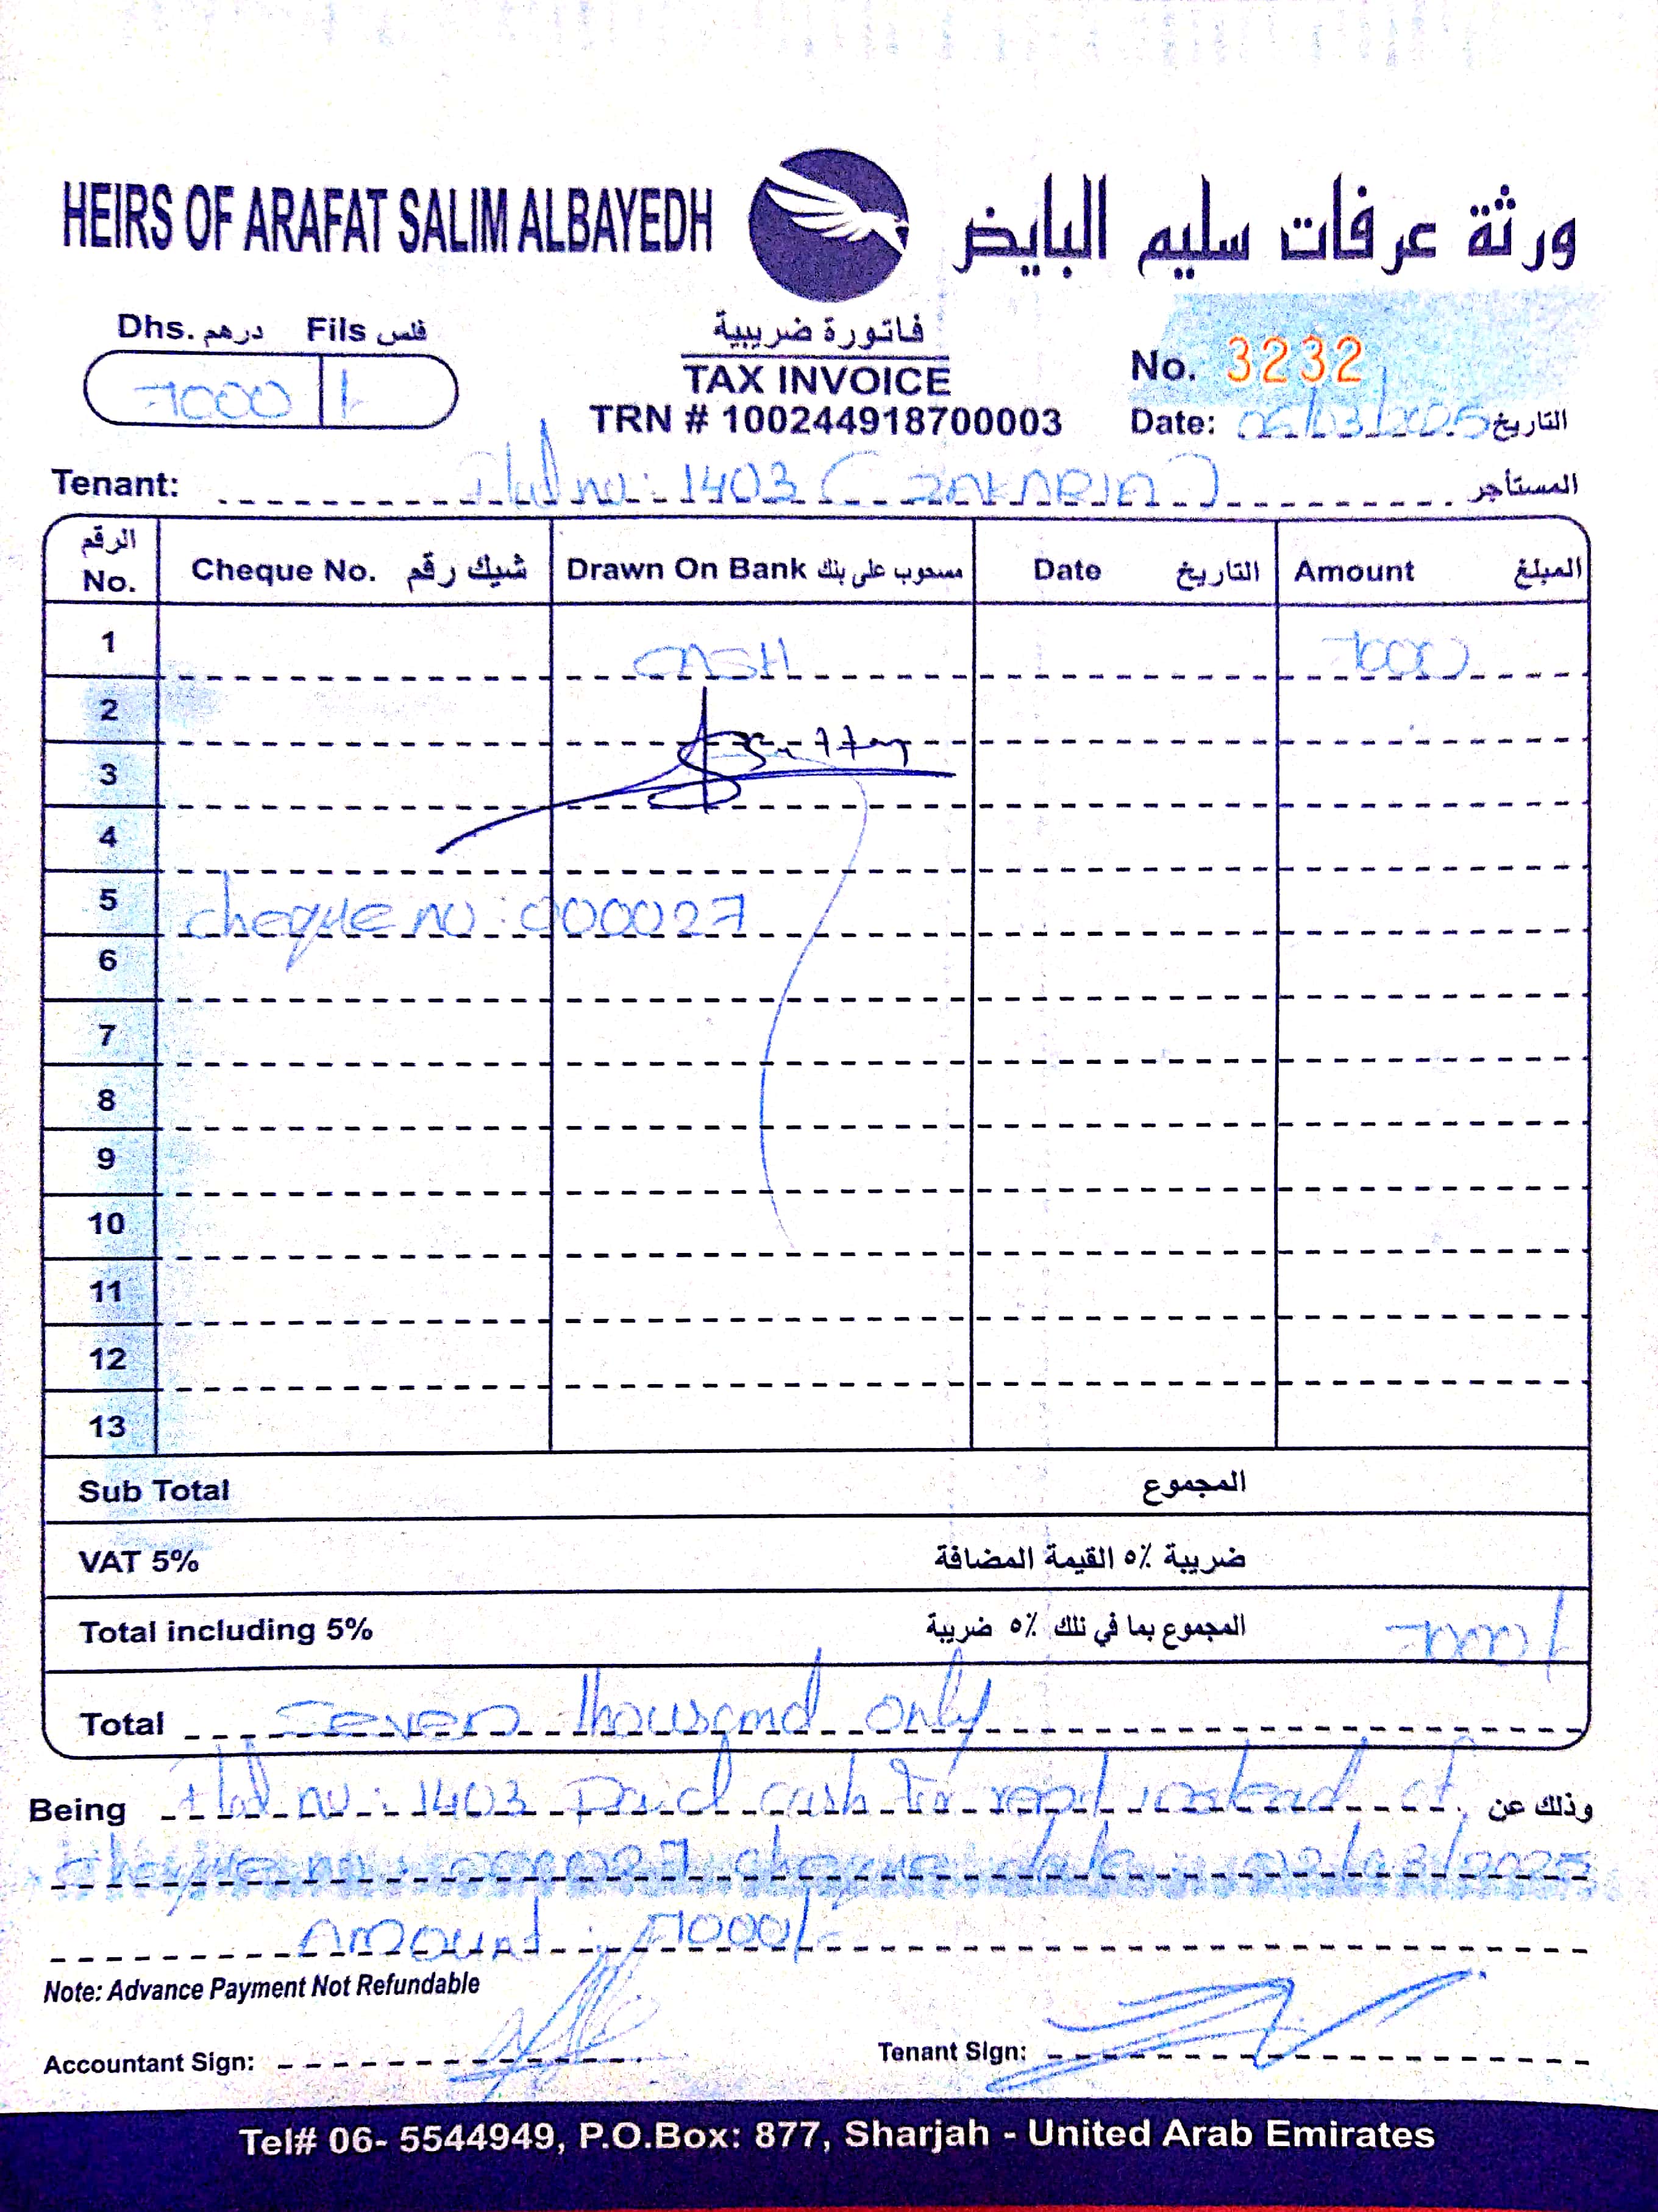 HEIRS OF ARAFAT SALIM ALBAYEDH ورثة عرفات سليم البايض
Dhs. درهم Fils فلس
7000 /
فاتورة ضريبية
TAX INVOICE
TRN # 100244918700003
No. 3232
Date: 05/03/2025 التاريخ
Tenant: Flat no: 1403 (ZAKARIA) المستأجر
الرقم No. Cheque No. شيك رقم Drawn On Bank مسحوب على بنك Date التاريخ Amount المبلغ
1 CASH 7000
2
3
4
5 cheque no: 000027
6
7
8
9
10
11
12
13
Sub Total المجموع
VAT 5% ضريبة ٥٪ القيمة المضافة
Total including 5% المجموع بما في ذلك ٥٪ ضريبة 7000/
Total Seven thousand only
Being Flat no: 1403 Paid cash for rent instead of وذلك عن
cheque no: 000027 cheque date: 02/03/2025
Amount: 7000/-
Note: Advance Payment Not Refundable
Accountant Sign:
Tenant Sign:
Tel# 06- 5544949, P.O.Box: 877, Sharjah - United Arab Emirates